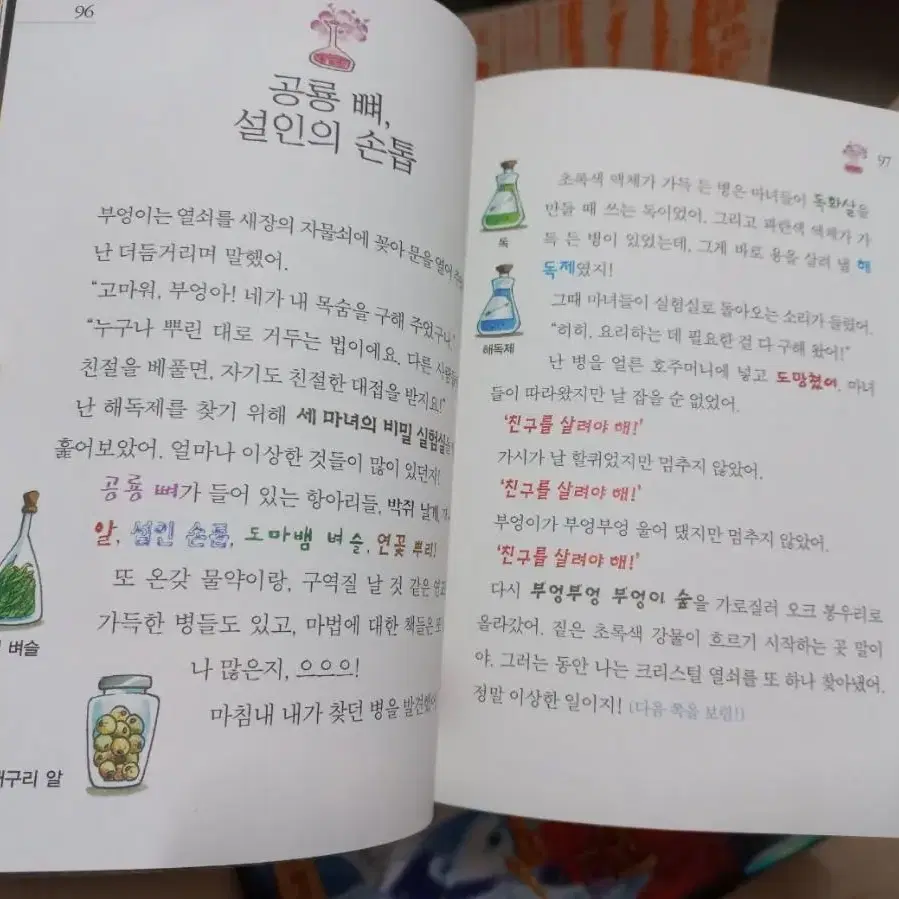 96
공룡 뼈,
설인의 손톱
부엉이는 열쇠를 새장의 자물쇠에 꽂아 문을 열어
난 더듬거리며 말했어.
“고마워, 부엉아! 네가 내 목숨을 구해 주었구나.”
“누구나 뿌린 대로 거두는 법이에요. 다른
친절을 베풀면, 자기도 친절한 대접을 받지요!”
난 해독제를 찾기 위해 세 마녀의 비밀 실험실을
훑어보았어. 얼마나 이상한 것들이 많이 있던지!
공룡 뼈가 들어 있는 항아리들, 박쥐 날개,
알, 설인 손톱, 도마뱀 벼슬, 연꽃 뿌리!
또 온갖 물약이랑, 구역질 날 것 같은
가득한 병들도 있고, 마법에 대한 책들은
나 많은지, 으으으!
마침내 내가 찾던 병을 발견했어
벼슬
개구리 알
97
초록색 액체가 가득 든 병은 마녀들이 독화살을
만들 때 쓰는 독이었어. 그리고 파란색 액체가 가
득 든 병이 있었는데, 그게 바로 용을 살려 낼 해
독제였지!
그때 마녀들이 실험실로 돌아오는 소리가 들렸어.
“히히, 요리하는 데 필요한 걸 다 구해 왔어!”
난 병을 얼른 호주머니에 넣고 도망쳤어. 마녀
들이 따라왔지만 날 잡을 순 없었어.
‘친구를 살려야 해!’
가시가 날 할퀴었지만 멈추지 않았어.
‘친구를 살려야 해!’
부엉이가 부엉부엉 울어 댔지만 멈추지 않았어.
‘친구를 살려야 해!’
다시 부엉부엉 부엉이 숲을 가로질러 오크 봉우리로
올라갔어. 짙은 초록색 강물이 흐르기 시작하는 곳 말이
야. 그러는 동안 나는 크리스털 열쇠를 또 하나 찾아냈어.
정말 이상한 일이지! (다음 쪽을 보렴!)
독
해독제